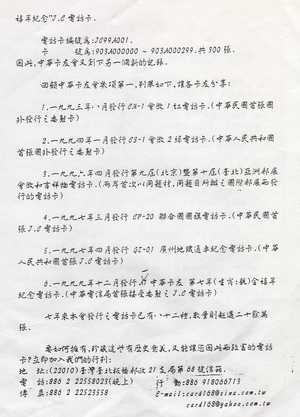 禧年紀念"I.C 電話卡.
電話卡編號為:JC99A001.
卡 號為:903A000000 ~ 903A000299.共 300 張.
因此,中華卡友會又創下另一個新的記錄.
回顧中華卡友會眾項第一,列舉如下,讓各卡友分享:
1.一九九三年八月發行 CN-1 會徽 1 枚電話卡.(中華民國首張國
外發行之委製卡)
2.一九九四年一月發行 CS-1 會徽 2 枚電話卡.(中華人民共和國
首張國外發行之委製卡)
3.一九九六年四月發行第九屆(北京)暨第十屆(臺北)亞洲郵展
會徽和吉祥物電話卡.(兩岸首次以同題材,同題目所銷之國際郵展而發
行的電話卡)
4.一九九七年三月發行 CP-20 聯合國國旗電話卡.(中華民國首
張 I.C 電話卡)
5.一九九七年四月發行 GZ-01 廣州地鐵通車紀念電話卡.(中華
人民共和國首張 I.C 電話卡)
6.一九九九年十二月發行 中華卡友 第七年(生肖:兔)會禧年
紀念電話卡.(中華電信局首張接受委製之 I.C 電話卡)
七年來本會發行之電話卡已有,十二種,數量則超過二十餘萬
張.
要如何擁有,珍藏這些有歷史意義,又能讓您因此而致富的電話
卡?立即加入我們的行列:
地 址:(22010)臺灣臺北板橋郵政 21 支局第 68 號信箱.
電 話:886 2 22558023(晚上) 行 動:886 918066713
傳 真:886 2 22523558 E-mail:card168@sina.com.tw
card168@yahoo.com.tw